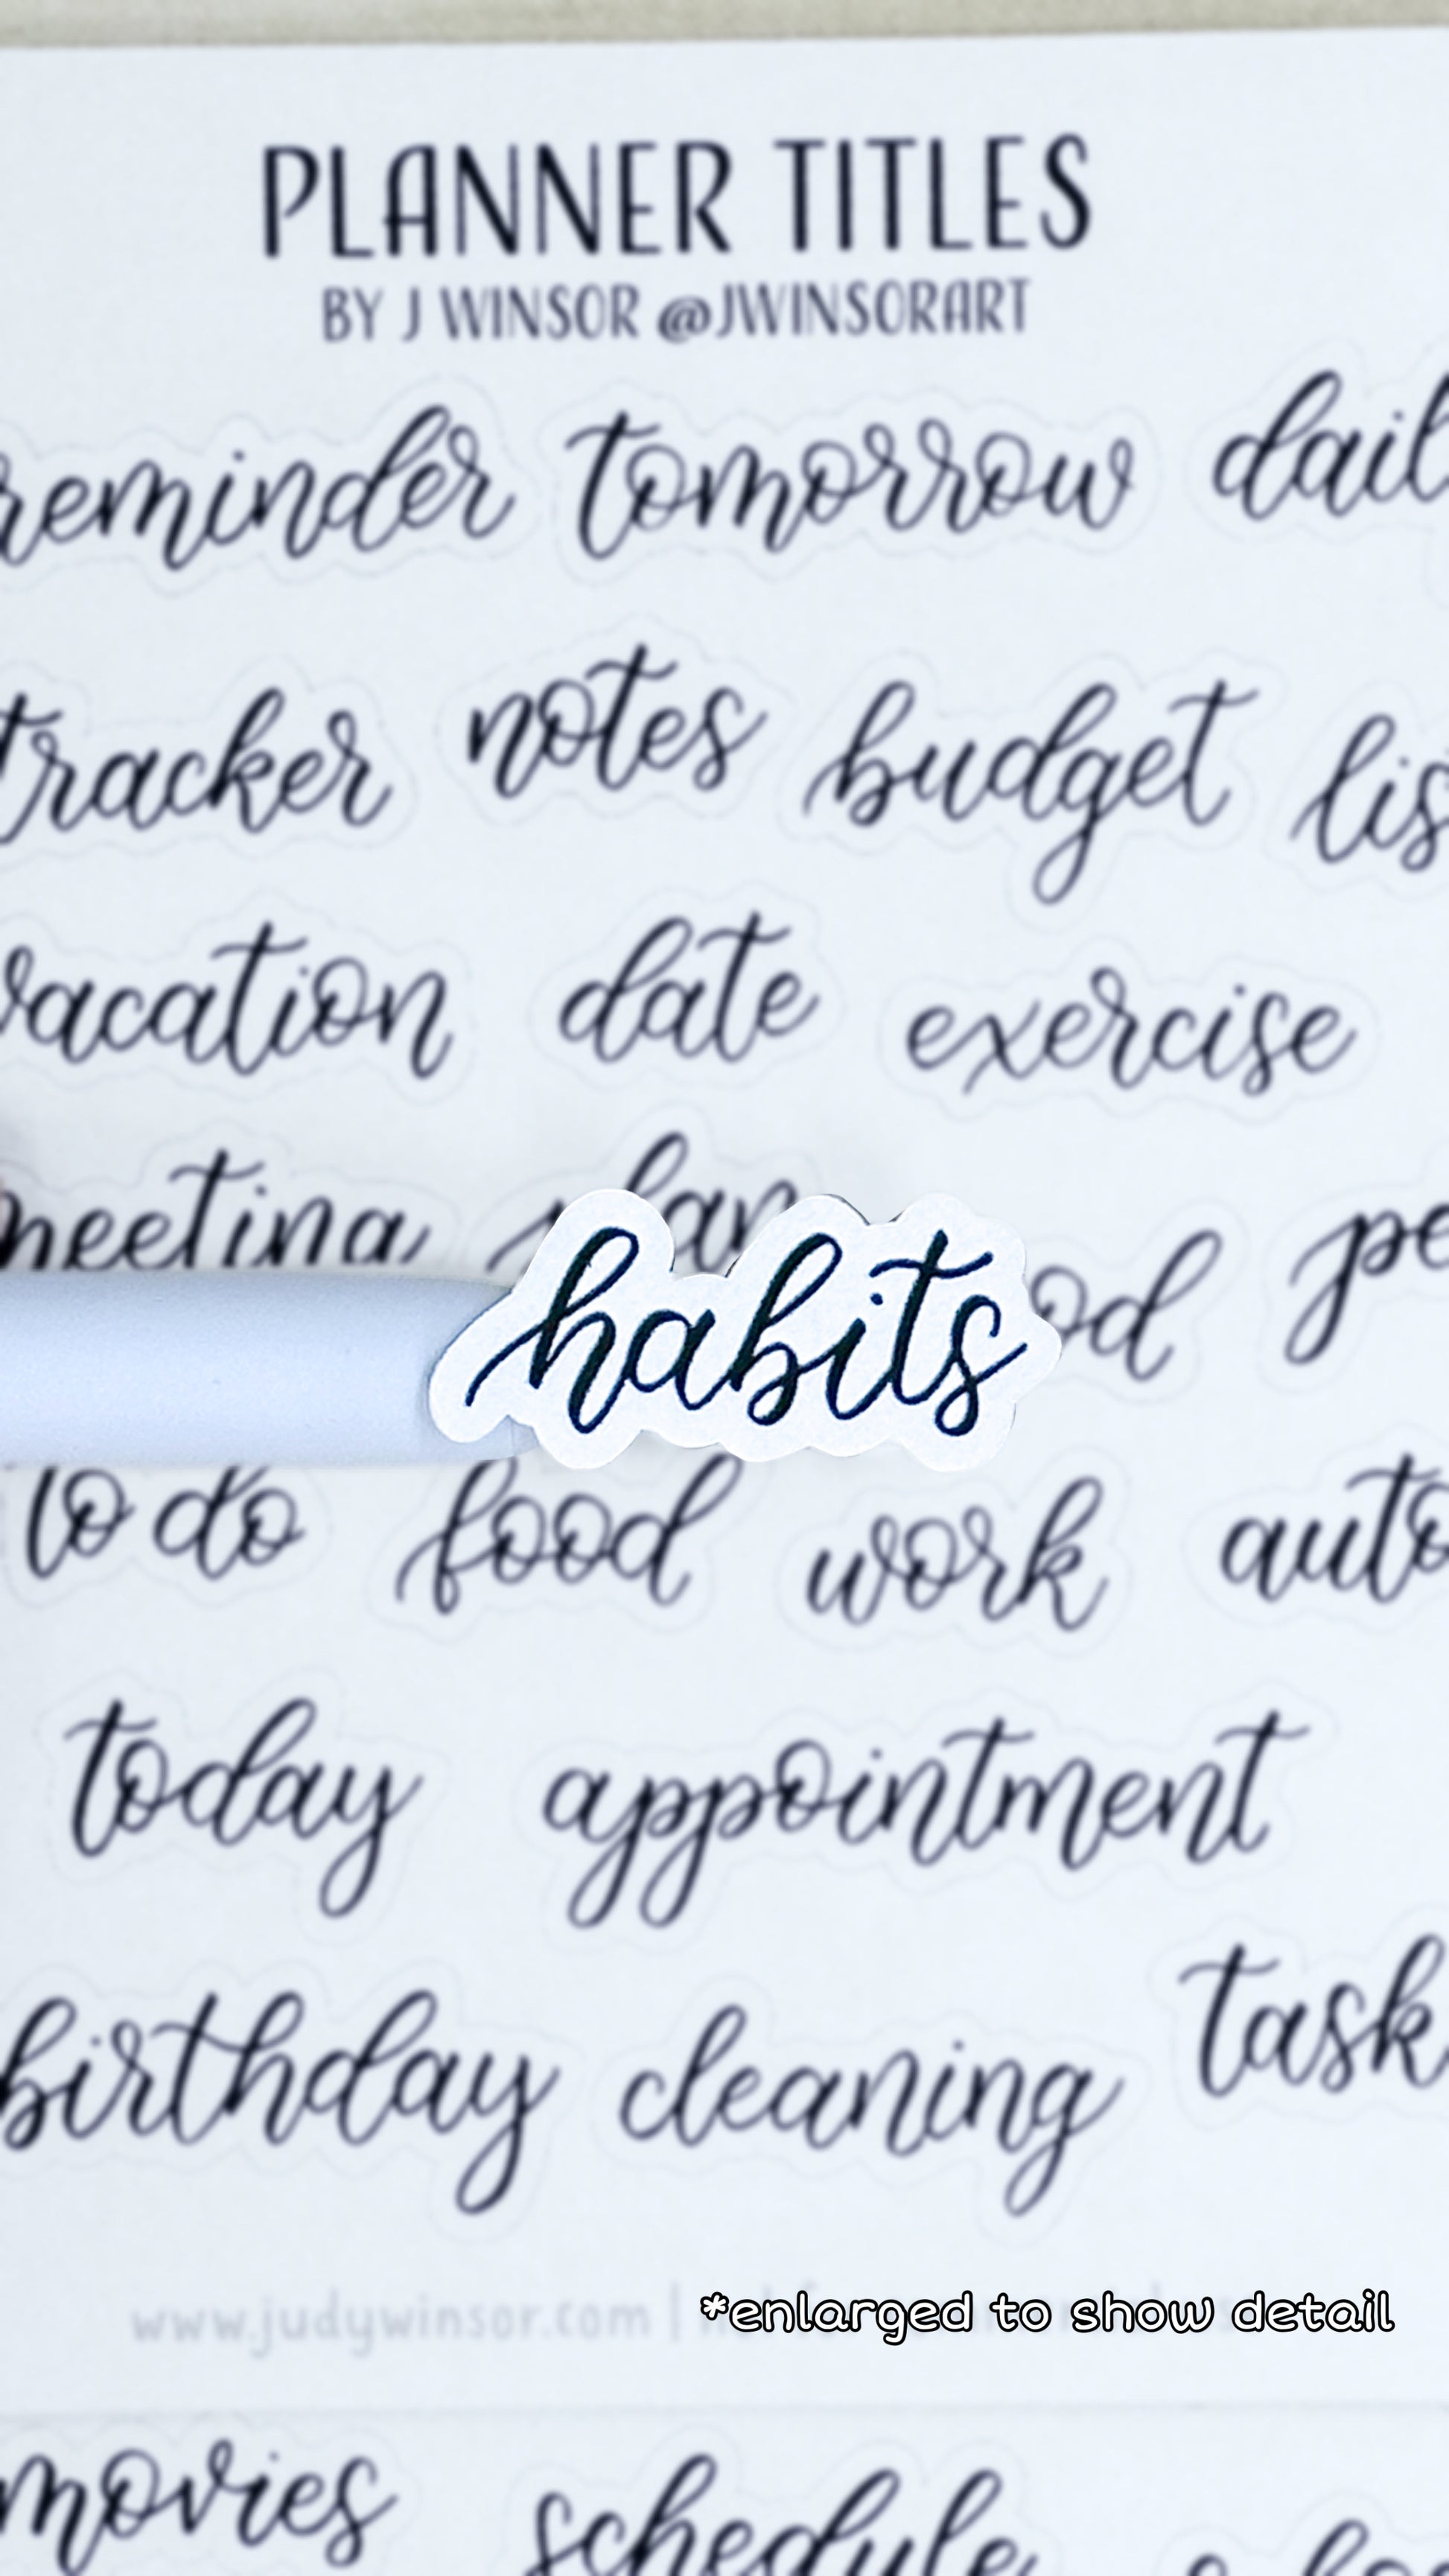 PLANNER TITLES
BY J WINSOR @JWINSORART
reminder tomorrow dail
tracker notes budget lis
vacation date exercise
meeting plan
habits
od pe
to do food work auto
today appointment
birthday cleaning task
www.judywinsor.com |
*enlarged to show detail
movies schedule